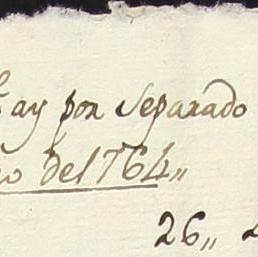 ay por Separado
del 1764,,
26,,